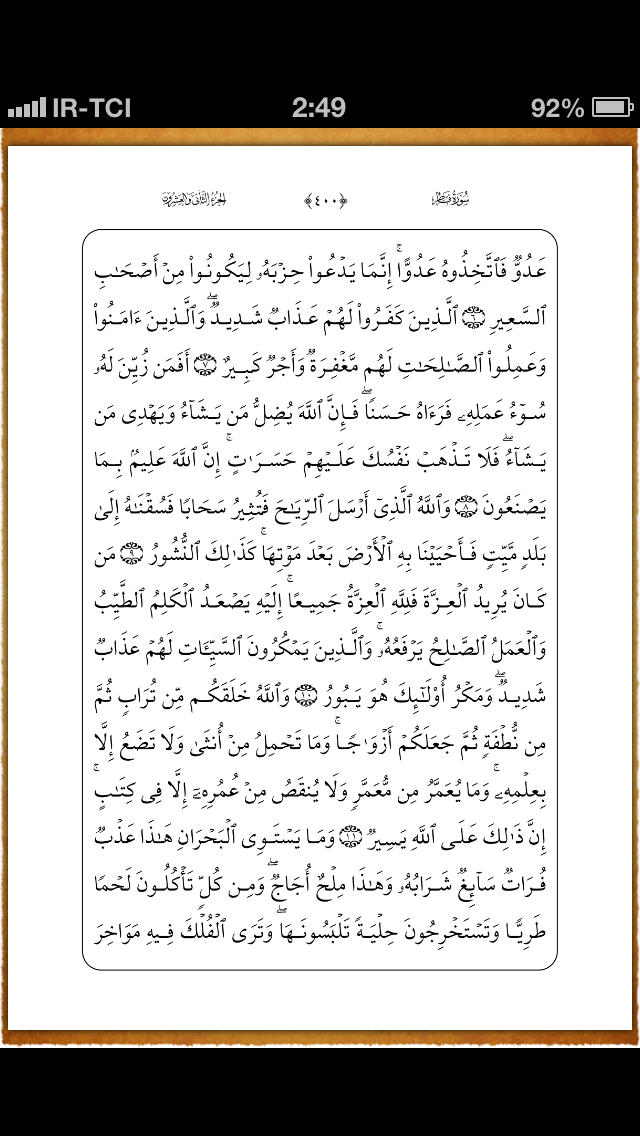 IR-TCI 2:49 92%
سُورَةُ فَاطِر ﴿٤٠٠﴾ الجُزءُ الثَّانِي وَالعِشرُونَ
عَدُوٌّ فَٱتَّخِذُوهُ عَدُوًّاۚ إِنَّمَا يَدۡعُواْ حِزۡبَهُۥ لِيَكُونُواْ مِنۡ أَصۡحَٰبِ
ٱلسَّعِيرِ ٦ ٱلَّذِينَ كَفَرُواْ لَهُمۡ عَذَابٞ شَدِيدٞۖ وَٱلَّذِينَ ءَامَنُواْ
وَعَمِلُواْ ٱلصَّٰلِحَٰتِ لَهُم مَّغۡفِرَةٞ وَأَجۡرٞ كَبِيرٌ ٧ أَفَمَن زُيِّنَ لَهُۥ
سُوٓءُ عَمَلِهِۦ فَرَءَاهُ حَسَنٗاۖ فَإِنَّ ٱللَّهَ يُضِلُّ مَن يَشَآءُ وَيَهۡدِي مَن
يَشَآءُۖ فَلَا تَذۡهَبۡ نَفۡسُكَ عَلَيۡهِمۡ حَسَرَٰتٍۚ إِنَّ ٱللَّهَ عَلِيمُۢ بِمَا
يَصۡنَعُونَ ٨ وَٱللَّهُ ٱلَّذِيٓ أَرۡسَلَ ٱلرِّيَٰحَ فَتُثِيرُ سَحَابٗا فَسُقۡنَٰهُ إِلَىٰ
بَلَدٖ مَّيِّتٖ فَأَحۡيَيۡنَا بِهِ ٱلۡأَرۡضَ بَعۡدَ مَوۡتِهَاۚ كَذَٰلِكَ ٱلنُّشُورُ ٩ مَن
كَانَ يُرِيدُ ٱلۡعِزَّةَ فَلِلَّهِ ٱلۡعِزَّةُ جَمِيعًاۚ إِلَيۡهِ يَصۡعَدُ ٱلۡكَلِمُ ٱلطَّيِّبُ
وَٱلۡعَمَلُ ٱلصَّٰلِحُ يَرۡفَعُهُۥۚ وَٱلَّذِينَ يَمۡكُرُونَ ٱلسَّيِّـَٔاتِ لَهُمۡ عَذَابٞ
شَدِيدٞۖ وَمَكۡرُ أُوْلَٰٓئِكَ هُوَ يَبُورُ ١٠ وَٱللَّهُ خَلَقَكُم مِّن تُرَابٖ ثُمَّ
مِن نُّطۡفَةٖ ثُمَّ جَعَلَكُمۡ أَزۡوَٰجٗاۚ وَمَا تَحۡمِلُ مِنۡ أُنثَىٰ وَلَا تَضَعُ إِلَّا
بِعِلۡمِهِۦۚ وَمَا يُعَمَّرُ مِن مُّعَمَّرٖ وَلَا يُنقَصُ مِنۡ عُمُرِهِۦٓ إِلَّا فِي كِتَٰبٍۚ
إِنَّ ذَٰلِكَ عَلَى ٱللَّهِ يَسِيرٞ ١١ وَمَا يَسۡتَوِي ٱلۡبَحۡرَانِ هَٰذَا عَذۡبٞ
فُرَاتٞ سَآئِغٞ شَرَابُهُۥ وَهَٰذَا مِلۡحٌ أُجَاجٞۖ وَمِن كُلّٖ تَأۡكُلُونَ لَحۡمٗا
طَرِيّٗا وَتَسۡتَخۡرِجُونَ حِلۡيَةٗ تَلۡبَسُونَهَاۖ وَتَرَى ٱلۡفُلۡكَ فِيهِ مَوَاخِرَ